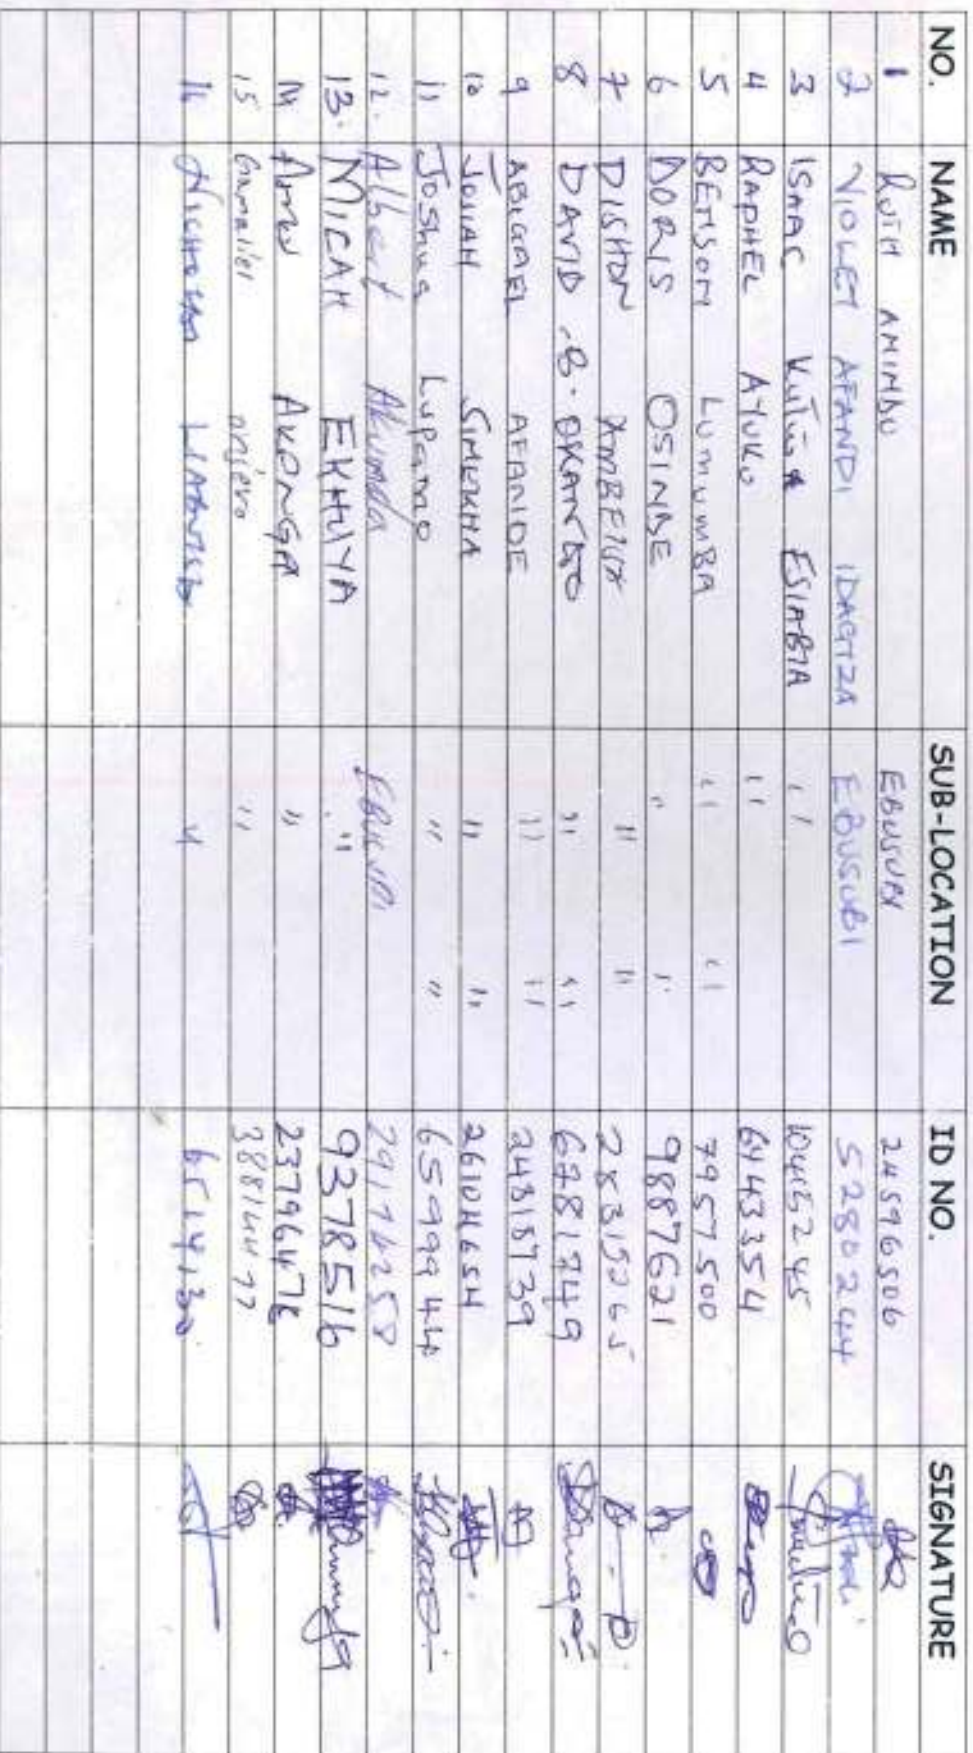 NO. NAME SUB-LOCATION ID NO. SIGNATURE
1 RUTH AMIMBU EBUSUBI 24596506
2 VIOLET AFANDI IDAGIZA EBUSUBI 5280244
3 ISAAC ESIABIA " 10415245
4 RAPHEL AYUKU " 6443354
5 BETISON LUMUMBA " " 7957500
6 DORIS OSINDE " " 9887621
7 DISHON " " 28315265
8 DAVID .B. OKANGO " " 6781749
9 ABIGAEL AFANIDE " " 24818739
10 JOSIAH SIMEKHA " " 26104654
11 Joshua Lupamo " " 6599944
12. Albert Akumda Ebusubi 29176258
13. MICAH EKHUYA " 9378516
14 AKENGA " 23796476
15 Gamaliel onjero " 38814477
16 " 6514130